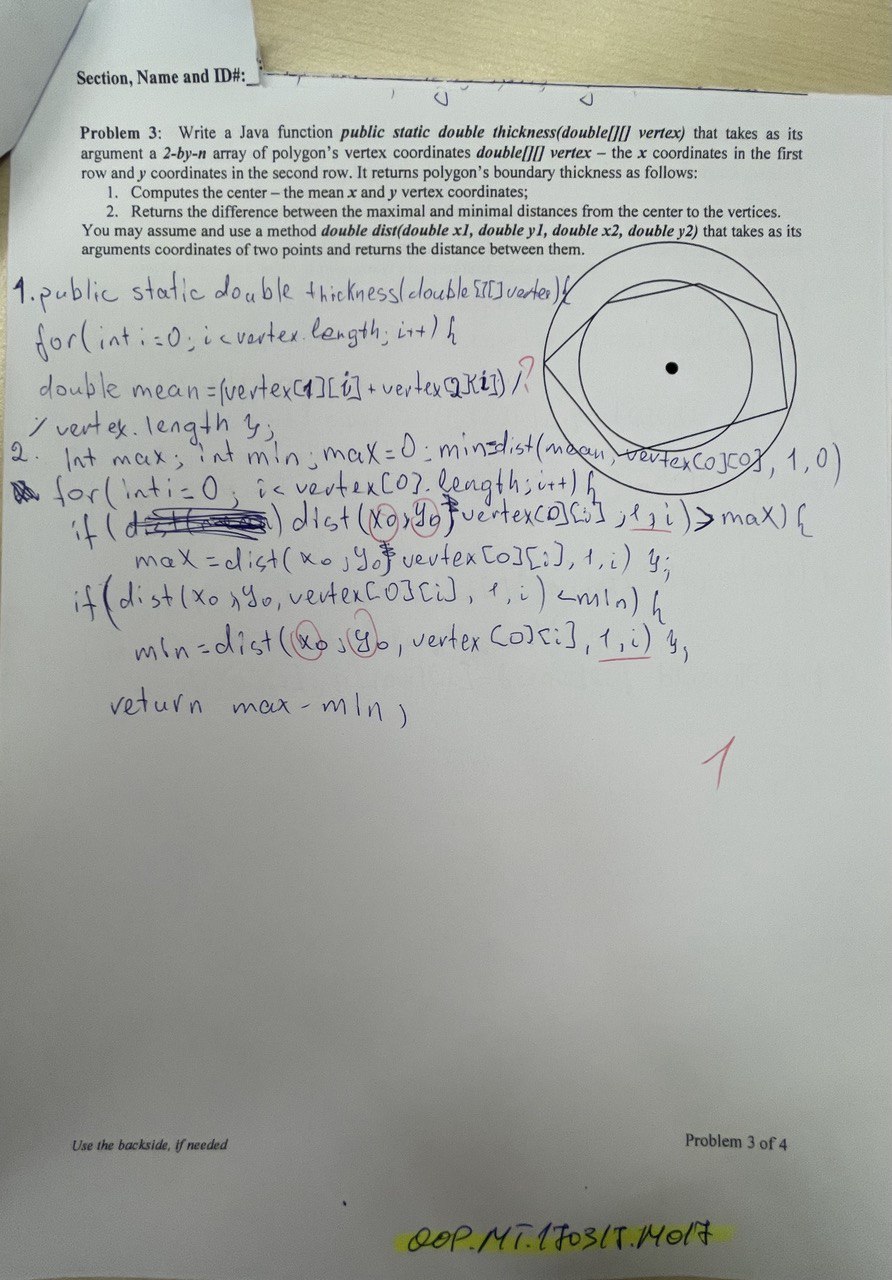 Section, Name and ID#:_
Problem 3: Write a Java function public static double thickness(double[][] vertex) that takes as its
argument a 2-by-n array of polygon's vertex coordinates double[][] vertex – the x coordinates in the first
row and y coordinates in the second row. It returns polygon's boundary thickness as follows:
1. Computes the center – the mean x and y vertex coordinates;
2. Returns the difference between the maximal and minimal distances from the center to the vertices.
You may assume and use a method double dist(double x1, double y1, double x2, double y2) that takes as its
arguments coordinates of two points and returns the distance between them.
1. public static double thickness(double[][] vertex){
for(int i=0; i<vertex.length; i++) {
double mean=(vertex[1][i]+vertex[2][i]) / ?
/ vertex.length };
2. Int max; int min; max=0; min=dist(mean, vertex[0][0], 1,0)
for(int i=0; i<vertex[0].length; i++) {
if( ) dist(x0, y0, vertex[0][i], 1, i) > max) {
max=dist(x0, y0, vertex[0][i], 1, i) };
if(dist(x0, y0, vertex[0][i], 1, i) <min) {
min=dist(x0, y0, vertex[0][i], 1, i) };
return max-min;
1
Use the backside, if needed
Problem 3 of 4
OOP.MT.170317.M017